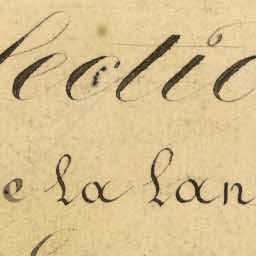 lectio
e la lan